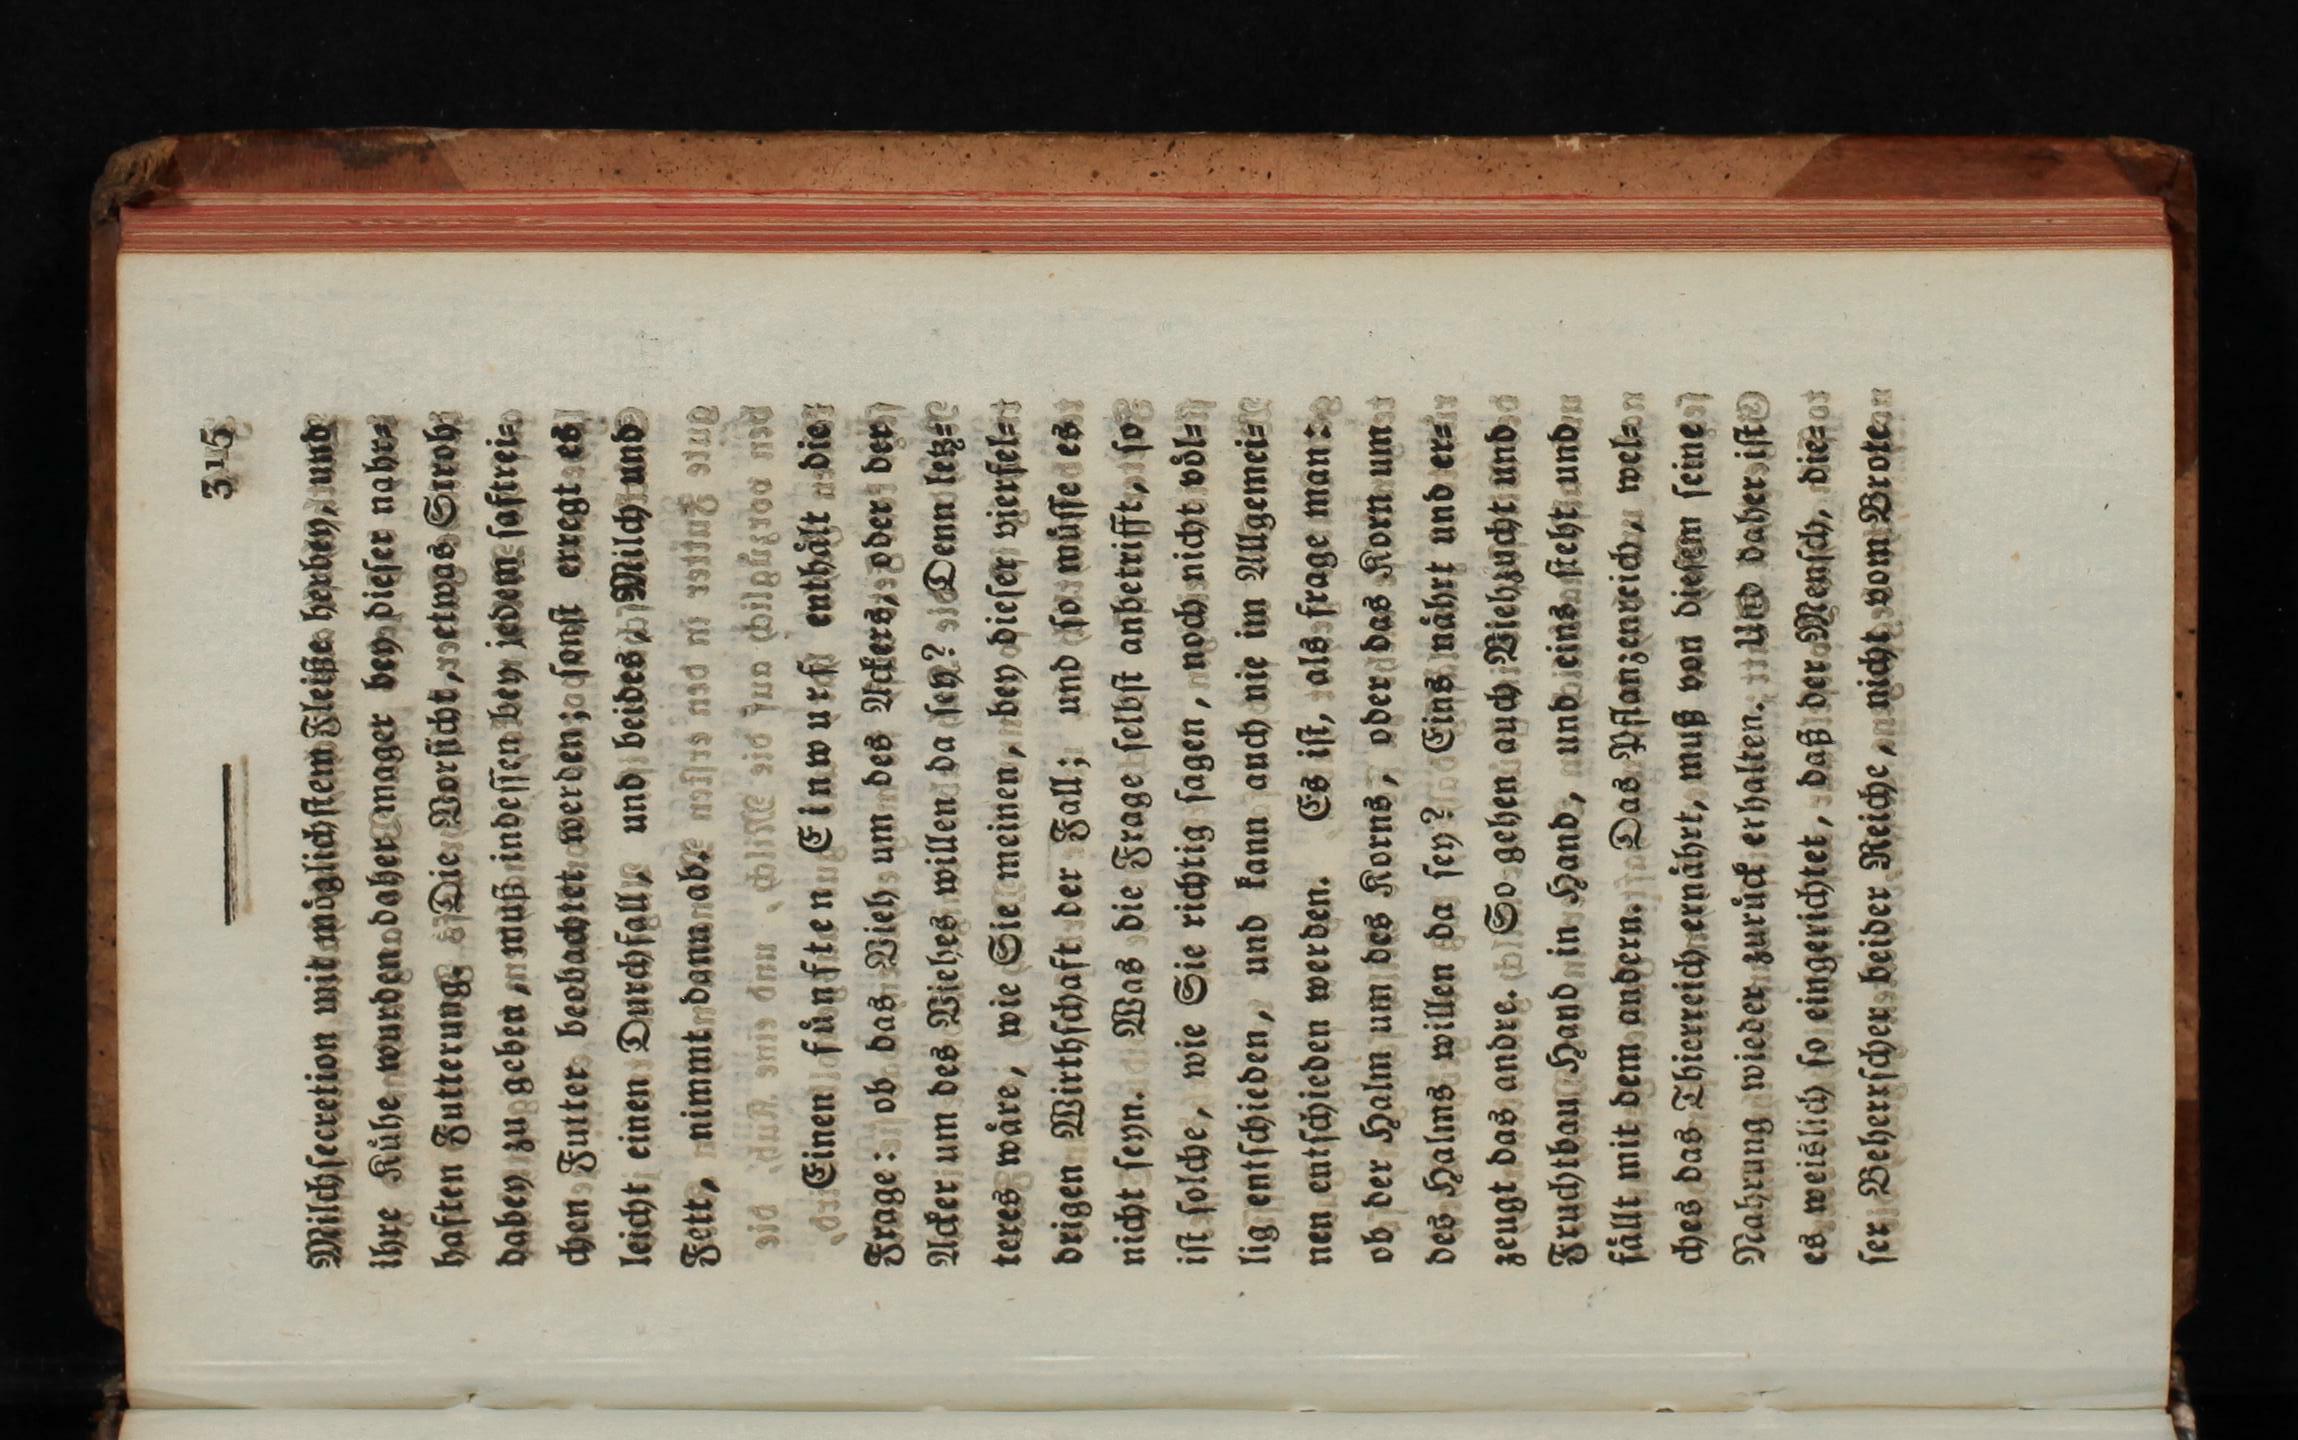 315
Milchſecretion mit möglichſtem Fleiße herbey, und
ihre Kühe wurden daher mager bey dieſer nahr⸗
haften Futterung. Die Vorſicht, etwas Stroh
dabey zu geben, muß indeſſen bey jedem ſaftrei⸗
chen Futter beobachtet werden; ſonſt erregt es
leicht einen Durchfall, und beides, Milch und
Fett, nimmt dann ab.
Einen fünften Einwurf enthält die
Frage: ob das Vieh um des Ackers, oder der
Acker um des Viehes willen da ſey? Denn letz⸗
teres wäre, wie Sie meinen, bey dieſer vierfel⸗
drigen Wirthſchaft der Fall; und ſo müſſe es
nicht ſeyn. Was die Frage ſelbſt anbetrifft, ſo
iſt ſolche, wie Sie richtig ſagen, noch nicht völ⸗
lig entſchieden, und kann auch nie im Allgemei⸗
nen entſchieden werden. Es iſt, als frage man:
ob der Halm um des Korns, oder das Korn um
des Halms willen da ſey? Eins nährt und er⸗
zeugt das andre. So gehen auch Viehzucht und
Fruchtbau Hand in Hand, und eins ſteht und
fällt mit dem andern. Das Pflanzenreich, wel⸗
ches das Thierreich ernährt, muß von dieſem ſeine
Nahrung wieder zurück erhalten. Und daher iſt
es weislich ſo eingerichtet, daß der Menſch, die⸗
ſer Beherrſcher beider Reiche, nicht vom Brote